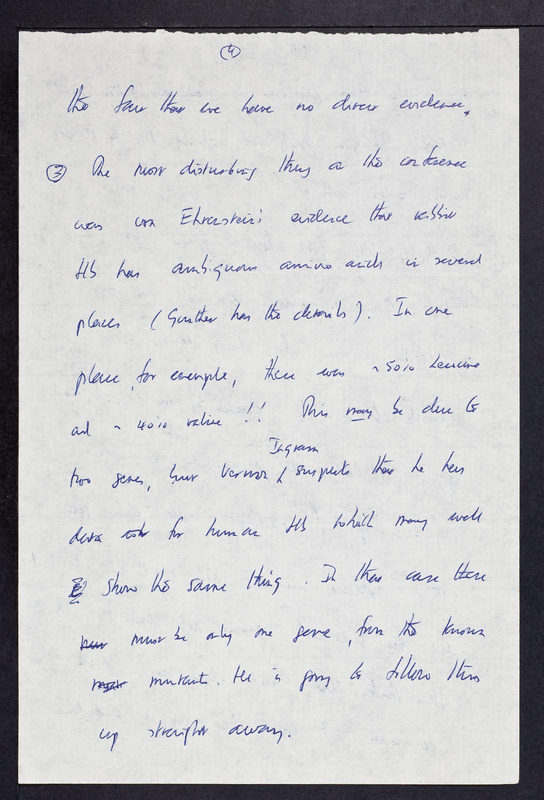 (4)
the fact that we have no direct evidence.
(3) The most disturbing thing at the conference
was von Ehrenstein's evidence that rabbit
Hb has ambiguous amino acids in several
places (Gunther has the details). In one
place, for example, there was ~50% leucine
and ~40% valine!! This may be due to
Ingram
two genes, but Vernon suspects that he has
data for human Hb which may well
show the same thing. In that case there
must be only one gene, from the known
mutants. He is going to follow this
up straight away.